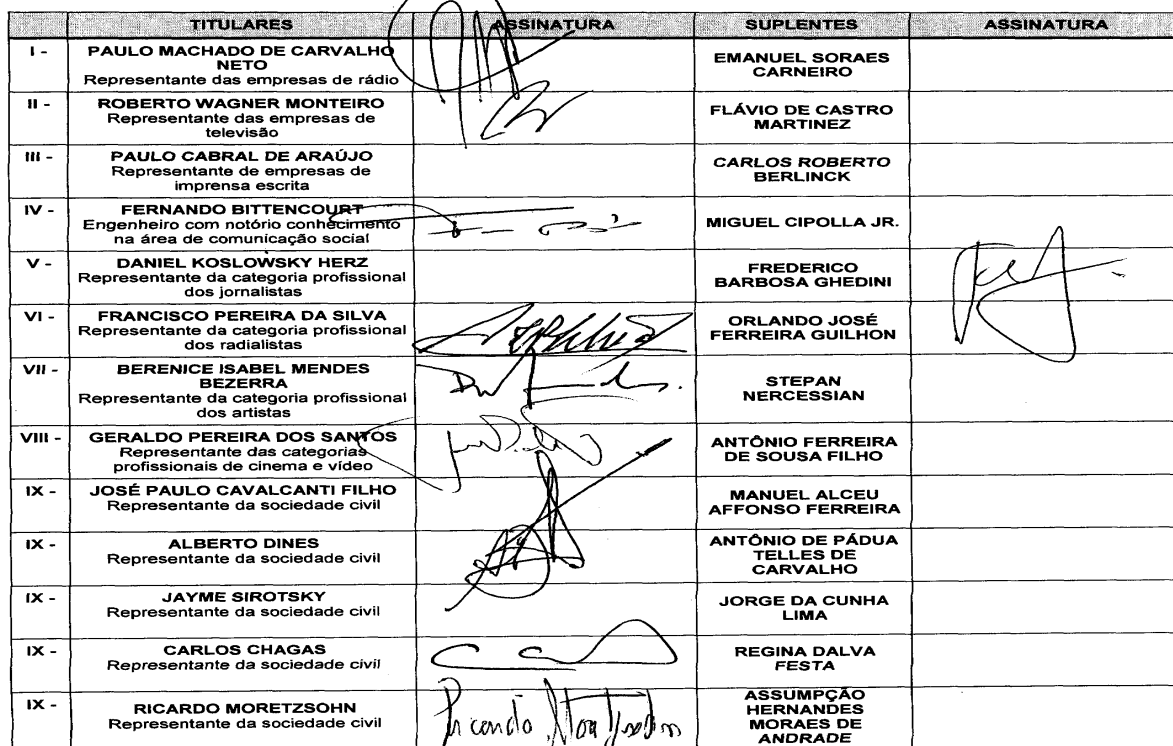 TITULARES ASSINATURA SUPLENTES ASSINATURA
I - PAULO MACHADO DE CARVALHO
NETO
Representante das empresas de rádio
EMANUEL SORAES
CARNEIRO
II - ROBERTO WAGNER MONTEIRO
Representante das empresas de
televisão
FLÁVIO DE CASTRO
MARTINEZ
III - PAULO CABRAL DE ARAÚJO
Representante de empresas de
imprensa escrita
CARLOS ROBERTO
BERLINCK
IV - FERNANDO BITTENCOURT
Engenheiro com notório conhecimento
na área de comunicação social
MIGUEL CIPOLLA JR.
V - DANIEL KOSLOWSKY HERZ
Representante da categoria profissional
dos jornalistas
FREDERICO
BARBOSA GHEDINI
VI - FRANCISCO PEREIRA DA SILVA
Representante da categoria profissional
dos radialistas
ORLANDO JOSÉ
FERREIRA GUILHON
VII - BERENICE ISABEL MENDES
BEZERRA
Representante da categoria profissional
dos artistas
STEPAN
NERCESSIAN
VIII - GERALDO PEREIRA DOS SANTOS
Representante das categorias
profissionais de cinema e vídeo
ANTÔNIO FERREIRA
DE SOUSA FILHO
IX - JOSÉ PAULO CAVALCANTI FILHO
Representante da sociedade civil
MANUEL ALCEU
AFFONSO FERREIRA
IX - ALBERTO DINES
Representante da sociedade civil
ANTÔNIO DE PÁDUA
TELLES DE
CARVALHO
IX - JAYME SIROTSKY
Representante da sociedade civil
JORGE DA CUNHA
LIMA
IX - CARLOS CHAGAS
Representante da sociedade civil
REGINA DALVA
FESTA
IX - RICARDO MORETZSOHN
Representante da sociedade civil
Ricardo Moretzsohn
ASSUMPÇÃO
HERNANDES
MORAES DE
ANDRADE